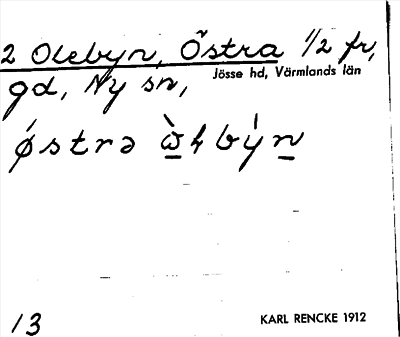 2 Olebyn, Östra 1/2 fr,
Jösse hd, Värmlands län
gd, Ny sn,
østrə
13
KARL RENCKE 1912